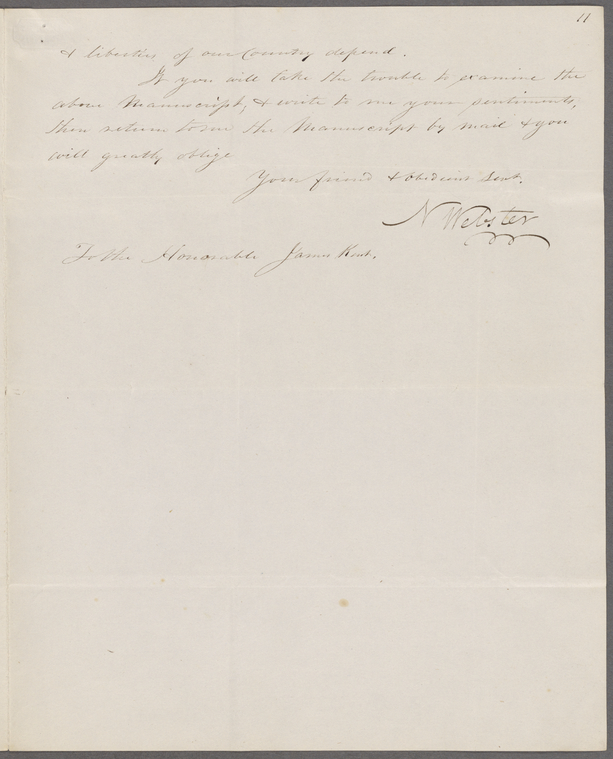 11
& liberties of our Country depend.
If you will take the trouble to examine the
above Manuscript, & write to me your sentiments,
then return to me the Manuscript by mail & you
will greatly oblige
Your friend & obedient Servt.
N Webster
To the Honorable James Kent.